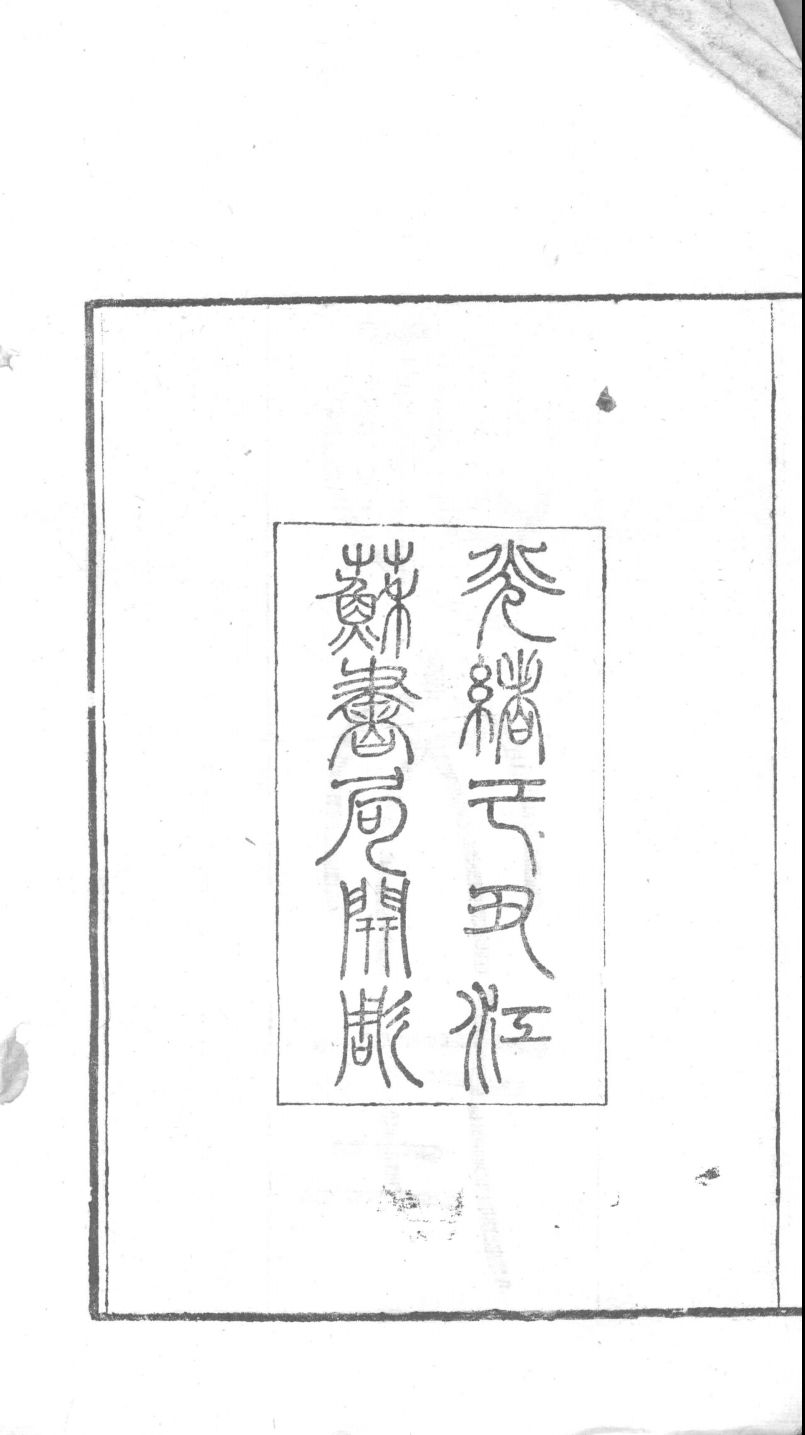 光緒己丑江
蘇書局開彫